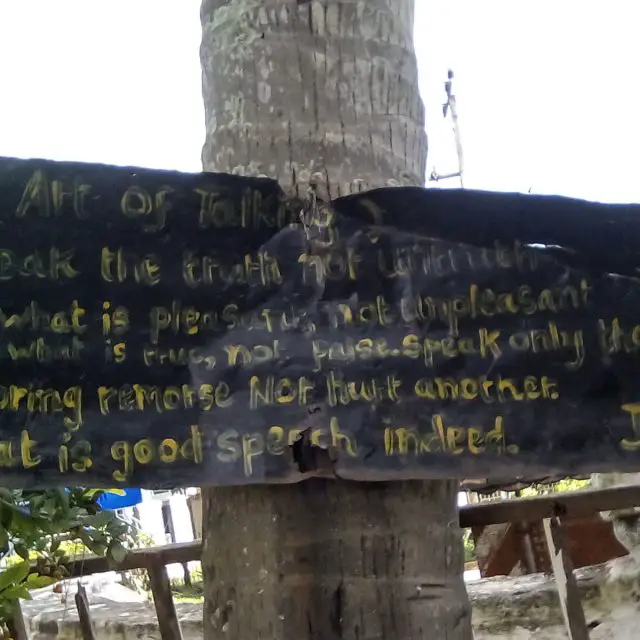 Art of Talking
eak the truth not untruth
what is pleasant, not unpleasant
what is true, not false. speak only tha
oring remorse Nor hurt another.
at is good speech indeed.